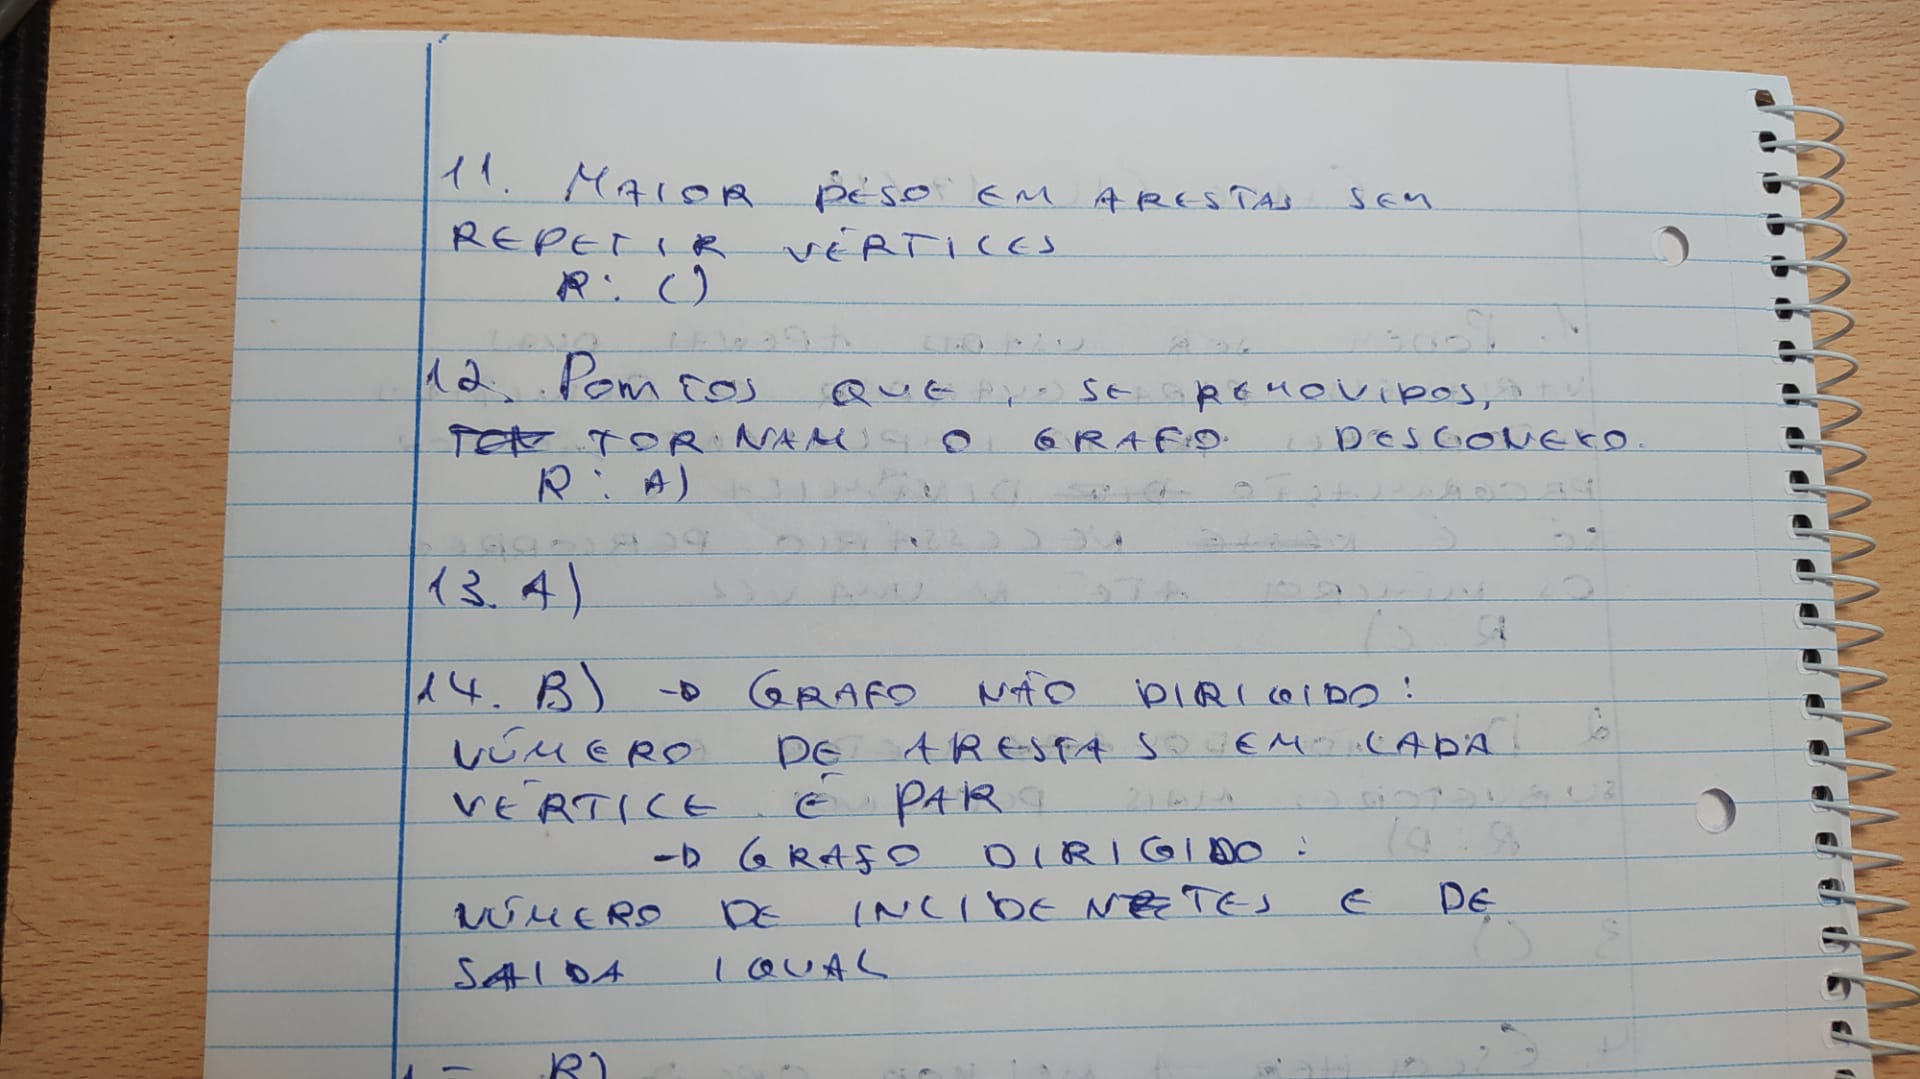 11. MAIOR PESO EM ARESTAS SEM
REPETIR VÉRTICES
R: C)
12. PONTOS QUE, SE REMOVIDOS,
TORNAM O GRAFO DESCONEXO.
R: A)
13. A)
14. B) → GRAFO NÃO DIRIGIDO:
NÚMERO DE ARESTAS EM CADA
VÉRTICE É PAR
→ GRAFO DIRIGIDO:
NÚMERO DE INCIDENTES E DE
SAIDA IGUAL